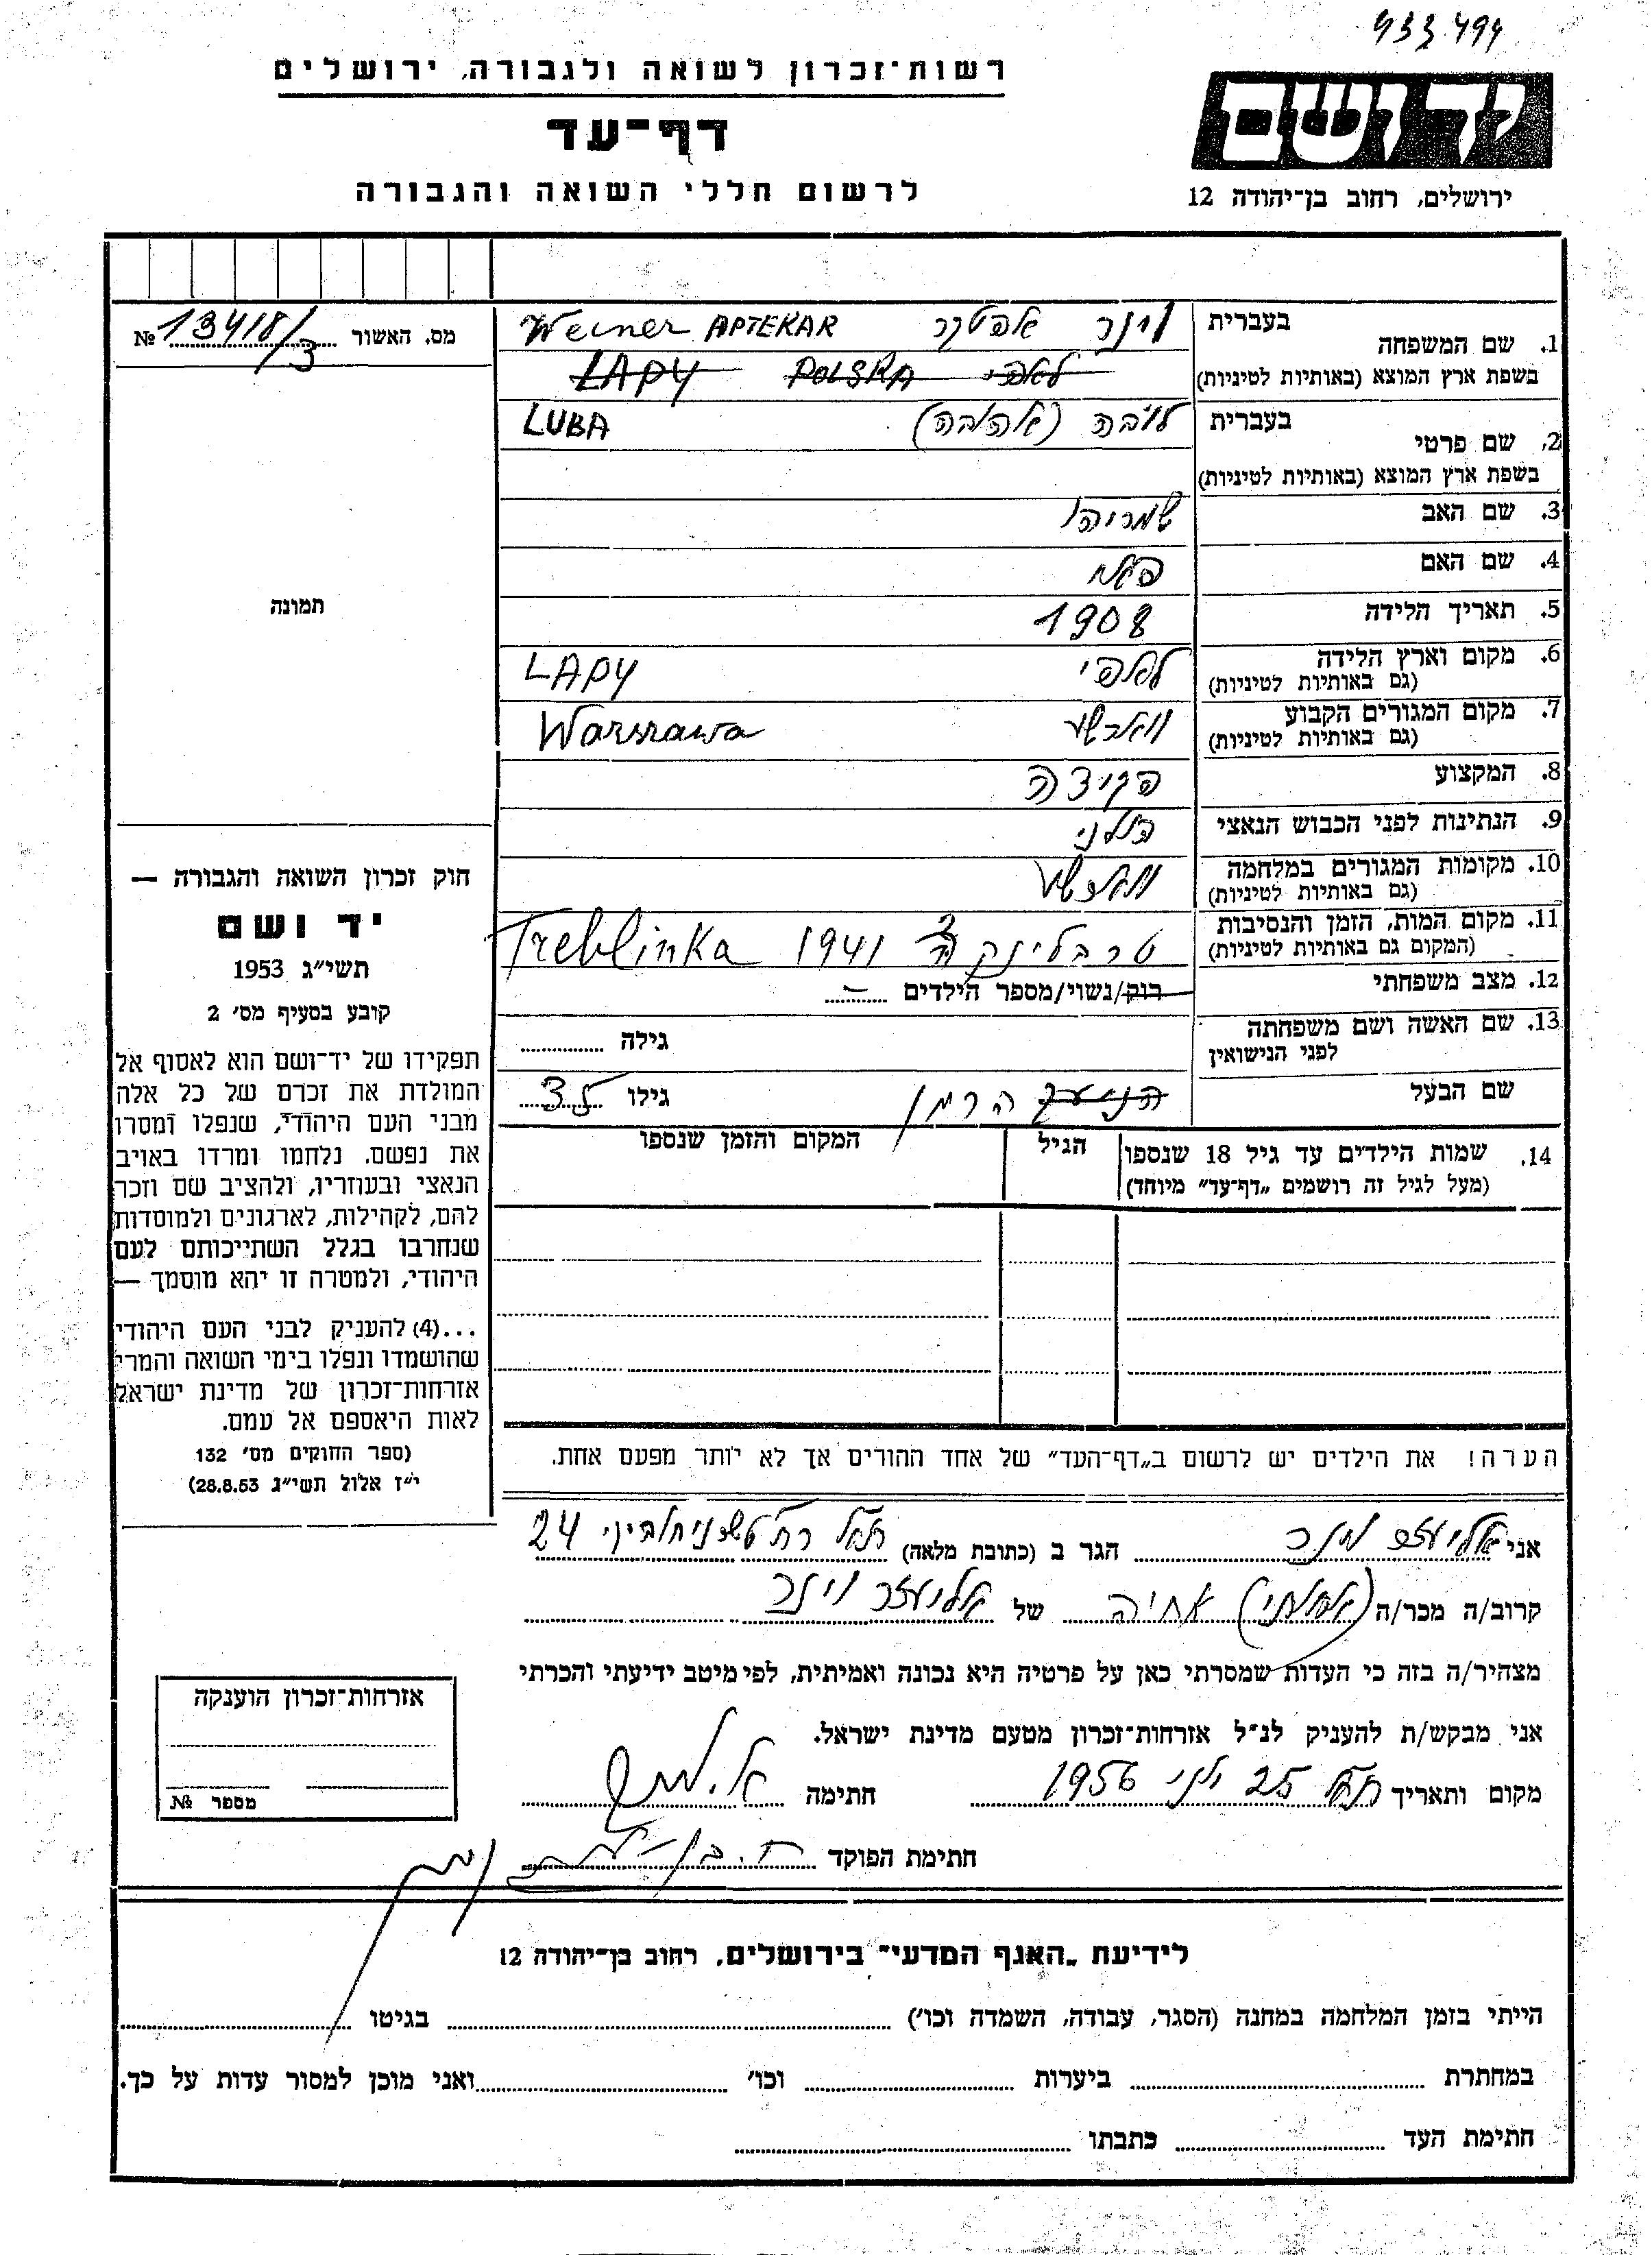 933 494
רשות־זכרון לשואה ולגבורה, ירושלים
דף־עד
לרשום חללי השואה והגבורה
יד ושם
ירושלים, רחוב בן־יהודה 12
מס. האשור № 13418/3
תמונה
1. שם המשפחה בעברית וינר אפטקר Weiner APTEKAR
בשפת ארץ המוצא (באותיות לטיניות) לאפי POLSKA LAPY
2. שם פרטי בעברית ליובה (אהובה) LUBA
בשפת ארץ המוצא (באותיות לטיניות)
3. שם האב שמריהו
4. שם האם
5. תאריך הלידה 1908
6. מקום וארץ הלידה לאפי LAPY
(גם באותיות לטיניות)
7. מקום המגורים הקבוע ווארשע Warszawa
(גם באותיות לטיניות)
8. המקצוע פקידה
9. הנתינות לפני הכבוש הנאצי פולני
10. מקומות המגורים במלחמה ווארשע
(גם באותיות לטיניות)
11. מקום המות, הזמן והנסיבות טרבלינקה 1941 Treblinka
(המקום גם באותיות לטיניות)
12. מצב משפחתי רוק/נשוי/מספר הילדים –
13. שם האשה ושם משפחתה גילה
לפני הנישואין
שם הבעל הרמן גילו 35
14. שמות הילדים עד גיל 18 שנספו הגיל המקום והזמן שנספו
(מעל לגיל זה רושמים „דף־עד" מיוחד)
חוק זכרון השואה והגבורה —
יד ושם
תשי"ג 1953
קובע בסעיף מס׳ 2
תפקידו של יד־ושם הוא לאסוף אל
המולדת את זכרם של כל אלה
מבני העם היהודי, שנפלו ומסרו
את נפשם, נלחמו ומרדו באויב
הנאצי ובעוזריו, ולהציב שם וזכר
להם, לקהילות, לארגונים ולמוסדות
שנחרבו בגלל השתייכותם לעם
היהודי, ולמטרה זו יהא מוסמך —
...(4) להעניק לבני העם היהודי
שהושמדו ונפלו בימי השואה והמרי
אזרחות־זכרון של מדינת ישראל
לאות היאספם אל עמם.
(ספר החוקים מס׳ 132
י"ז אלול תשי"ג 28.8.53)
הערה! את הילדים יש לרשום ב„דף־העד" של אחד ההורים אך לא יותר מפעם אחת.
אני אליעזר וינר הגר ב (כתובת מלאה) ת"א רח' טשרניחובסקי 24
קרוב/ה מכר/ה (אחותי) אחיה של אליעזר וינר
מצהיר/ה בזה כי העדות שמסרתי כאן על פרטיה היא נכונה ואמיתית, לפי מיטב ידיעתי והכרתי
אני מבקש/ת להעניק לנ"ל אזרחות־זכרון מטעם מדינת ישראל.
מקום ותאריך ת"א 25 יוני 1956 חתימה
חתימת הפוקד
אזרחות־זכרון הוענקה
מספר №
לידיעת „האגף המדעי" בירושלים, רחוב בן־יהודה 12
הייתי בזמן המלחמה במחנה (הסגר, עבודה, השמדה וכו׳) בגיטו
במחתרת ביערות וכו׳ ואני מוכן למסור עדות על כך.
חתימת העד כתבתו